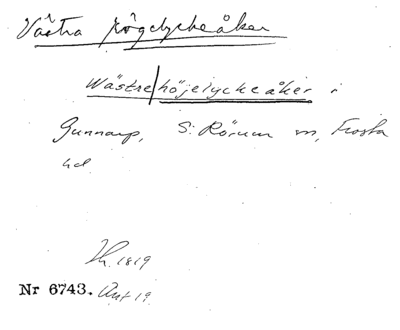 Västra högelyckeåker
Wästre/höjelyckeåker i
Gunnarp, S. Rörum sn, Frosta
hd
Lh. 1819
Nr 6743. Akt 19